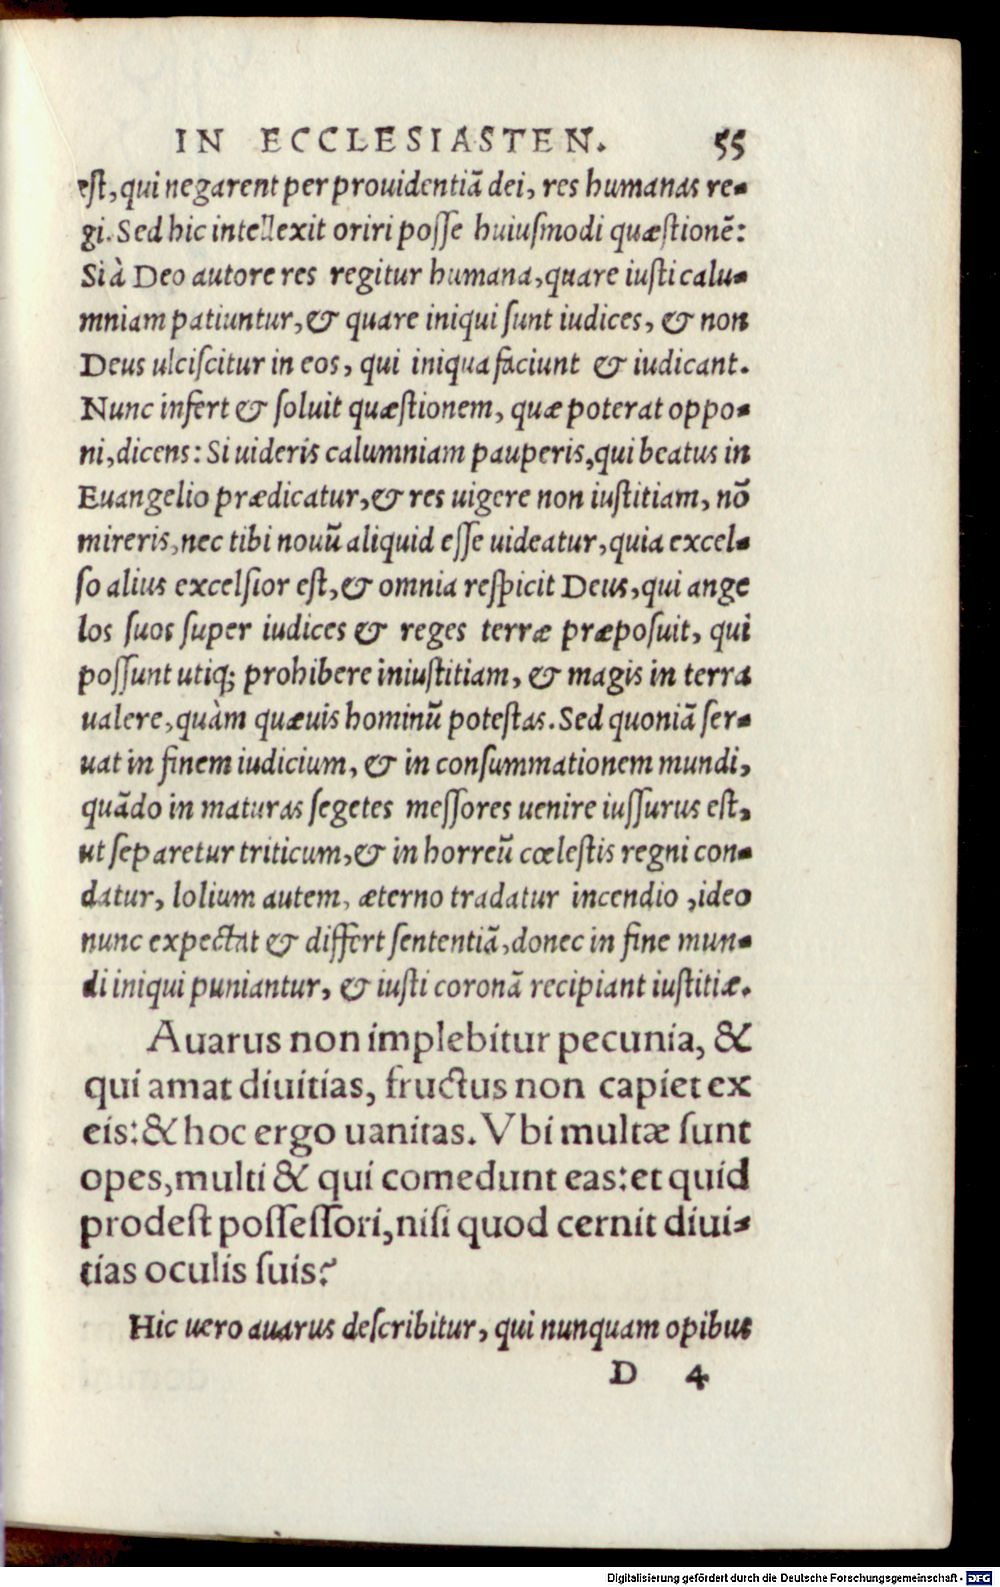 IN ECCLESIASTEN. 55
est, qui negarent per prouidentiā dei, res humanas re-
gi. Sed hic intellexit oriri posse huiusmodi quæstionē:
Si à Deo autore res regitur humana, quare iusti calu-
mniam patiuntur, & quare iniqui sunt iudices, & non
Deus ulciscitur in eos, qui iniqua faciunt & iudicant.
Nunc infert & soluit quæstionem, quæ poterat oppo-
ni, dicens: Si uideris calumniam pauperis, qui beatus in
Euangelio prædicatur, & res uigere non iustitiam, nō
mireris, nec tibi nouū aliquid esse uideatur, quia excel-
so alius excelsior est, & omnia respicit Deus, qui ange
los suos super iudices & reges terræ præposuit, qui
possunt utiq; prohibere iniustitiam, & magis in terra
ualere, quàm quæuis hominū potestas. Sed quoniā ser-
uat in finem iudicium, & in consummationem mundi,
quādo in maturas segetes messores uenire iussurus est,
ut separetur triticum, & in horreū cœlestis regni con-
datur, lolium autem, æterno tradatur incendio, ideo
nunc expectat & differt sententiā, donec in fine mun-
di iniqui puniantur, & iusti coronā recipiant iustitiæ.
Auarus non implebitur pecunia, &
qui amat diuitias, fructus non capiet ex
eis: & hoc ergo uanitas. Vbi multæ sunt
opes, multi & qui comedunt eas: et quid
prodest possessori, nisi quod cernit diui-
tias oculis suis?
Hic uero auarus describitur, qui nunquam opibus
D 4
Digitalisierung gefördert durch die Deutsche Forschungsgemeinschaft - DFG